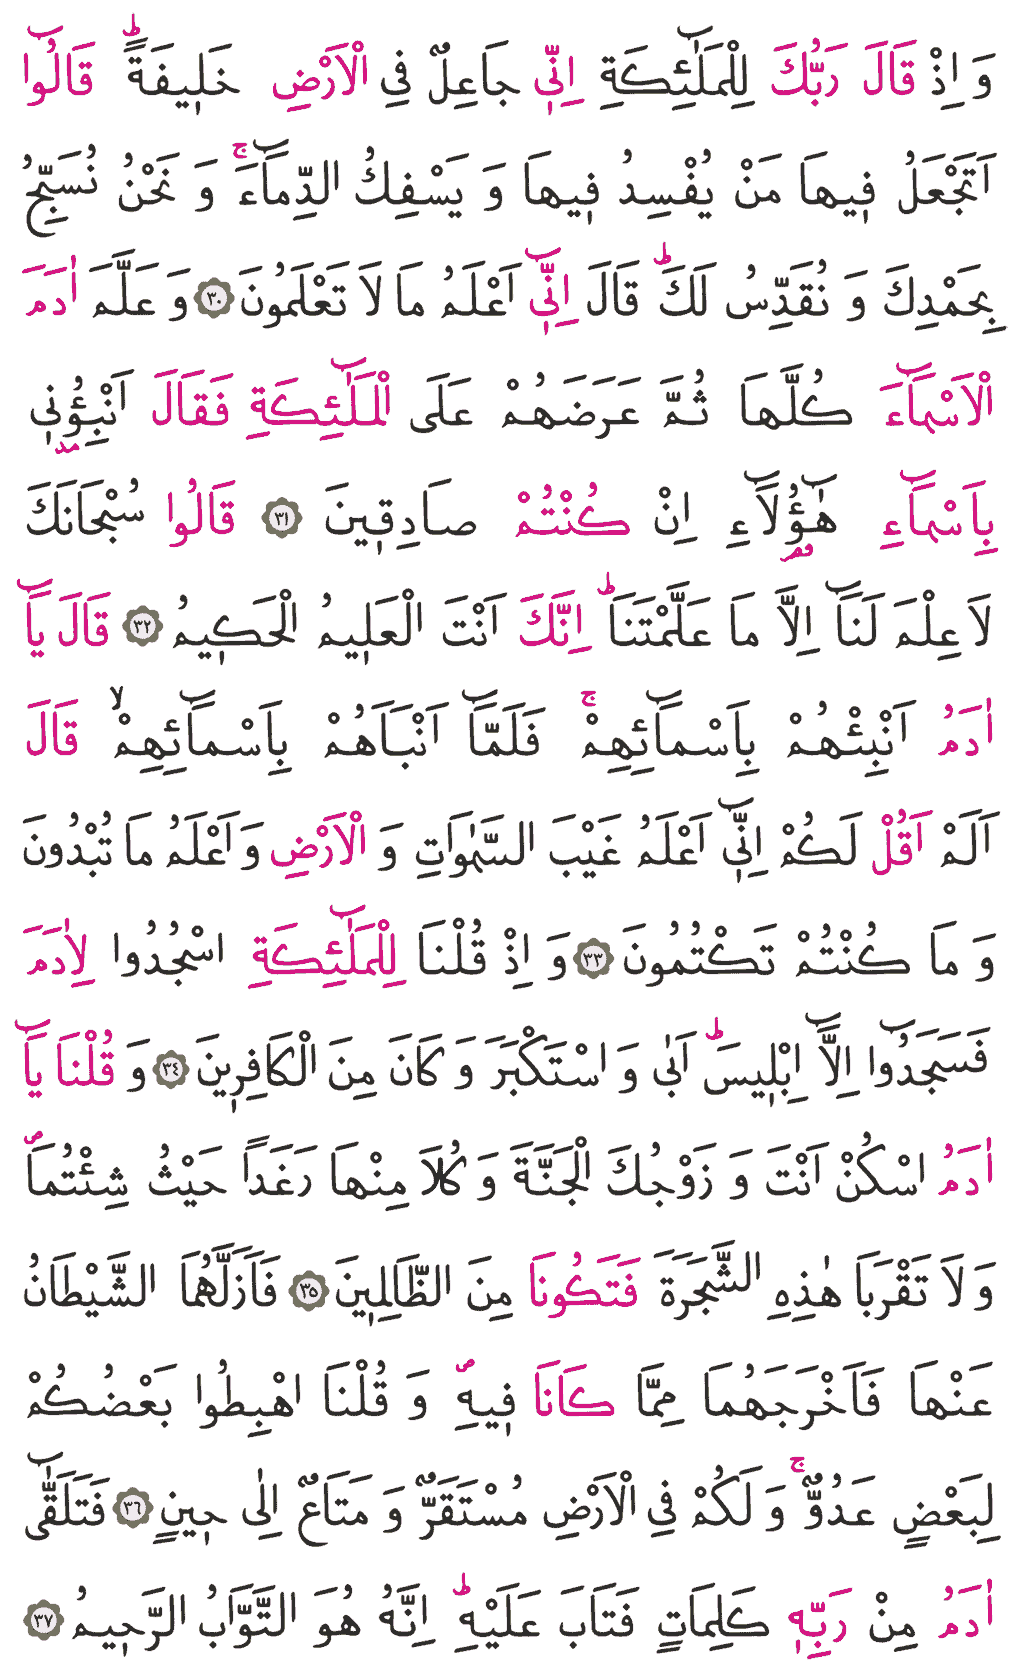 وَ اِذْ قَالَ رَبُّكَ لِلْمَلٰٓئِكَةِ اِنّ۪ي جَاعِلٌ فِي الْاَرْضِ خَل۪يفَةًۜ قَالُٓوا
اَتَجْعَلُ ف۪يهَا مَنْ يُفْسِدُ ف۪يهَا وَ يَسْفِكُ الدِّمَٓاءَۚ وَ نَحْنُ نُسَبِّحُ
بِحَمْدِكَ وَ نُقَدِّسُ لَكَۜ قَالَ اِنّ۪ٓي اَعْلَمُ مَا لَا تَعْلَمُونَ ﴿٣٠﴾ وَ عَلَّمَ اٰدَمَ
الْاَسْمَٓاءَ كُلَّهَا ثُمَّ عَرَضَهُمْ عَلَى الْمَلٰٓئِكَةِ فَقَالَ اَنْبِؤُ۫ن۪ي
بِاَسْمَٓاءِ هٰٓؤُ۬لَٓاءِ اِنْ كُنْتُمْ صَادِق۪ينَ ﴿٣١﴾ قَالُوا سُبْحَانَكَ
لَا عِلْمَ لَنَٓا اِلَّا مَا عَلَّمْتَنَاۜ اِنَّكَ اَنْتَ الْعَل۪يمُ الْحَك۪يمُ ﴿٣٢﴾ قَالَ يَٓا
اٰدَمُ اَنْبِئْهُمْ بِاَسْمَٓائِهِمْۚ فَلَمَّٓا اَنْبَاَهُمْ بِاَسْمَٓائِهِمْۙ قَالَ
اَلَمْ اَقُلْ لَكُمْ اِنّ۪ٓي اَعْلَمُ غَيْبَ السَّمٰوَاتِ وَ الْاَرْضِ وَ اَعْلَمُ مَا تُبْدُونَ
وَ مَا كُنْتُمْ تَكْتُمُونَ ﴿٣٣﴾ وَ اِذْ قُلْنَا لِلْمَلٰٓئِكَةِ اسْجُدُوا لِاٰدَمَ
فَسَجَدُٓوا اِلَّٓا اِبْل۪يسَۜ اَبٰى وَ اسْتَكْبَرَ وَ كَانَ مِنَ الْكَافِر۪ينَ ﴿٣٤﴾ وَ قُلْنَا يَٓا
اٰدَمُ اسْكُنْ اَنْتَ وَ زَوْجُكَ الْجَنَّةَ وَ كُلَا مِنْهَا رَغَداً حَيْثُ شِئْتُمَاۖ
وَ لَا تَقْرَبَا هٰذِهِ الشَّجَرَةَ فَتَكُونَا مِنَ الظَّالِم۪ينَ ﴿٣٥﴾ فَاَزَلَّهُمَا الشَّيْطَانُ
عَنْهَا فَاَخْرَجَهُمَا مِمَّا كَانَا ف۪يهِۖ وَ قُلْنَا اهْبِطُوا بَعْضُكُمْ
لِبَعْضٍ عَدُوٌّۚ وَ لَكُمْ فِي الْاَرْضِ مُسْتَقَرٌّ وَ مَتَاعٌ اِلٰى ح۪ينٍ ﴿٣٦﴾ فَتَلَقّٰٓى
اٰدَمُ مِنْ رَبِّه۪ كَلِمَاتٍ فَتَابَ عَلَيْهِۜ اِنَّهُ هُوَ التَّوَّابُ الرَّح۪يمُ ﴿٣٧﴾